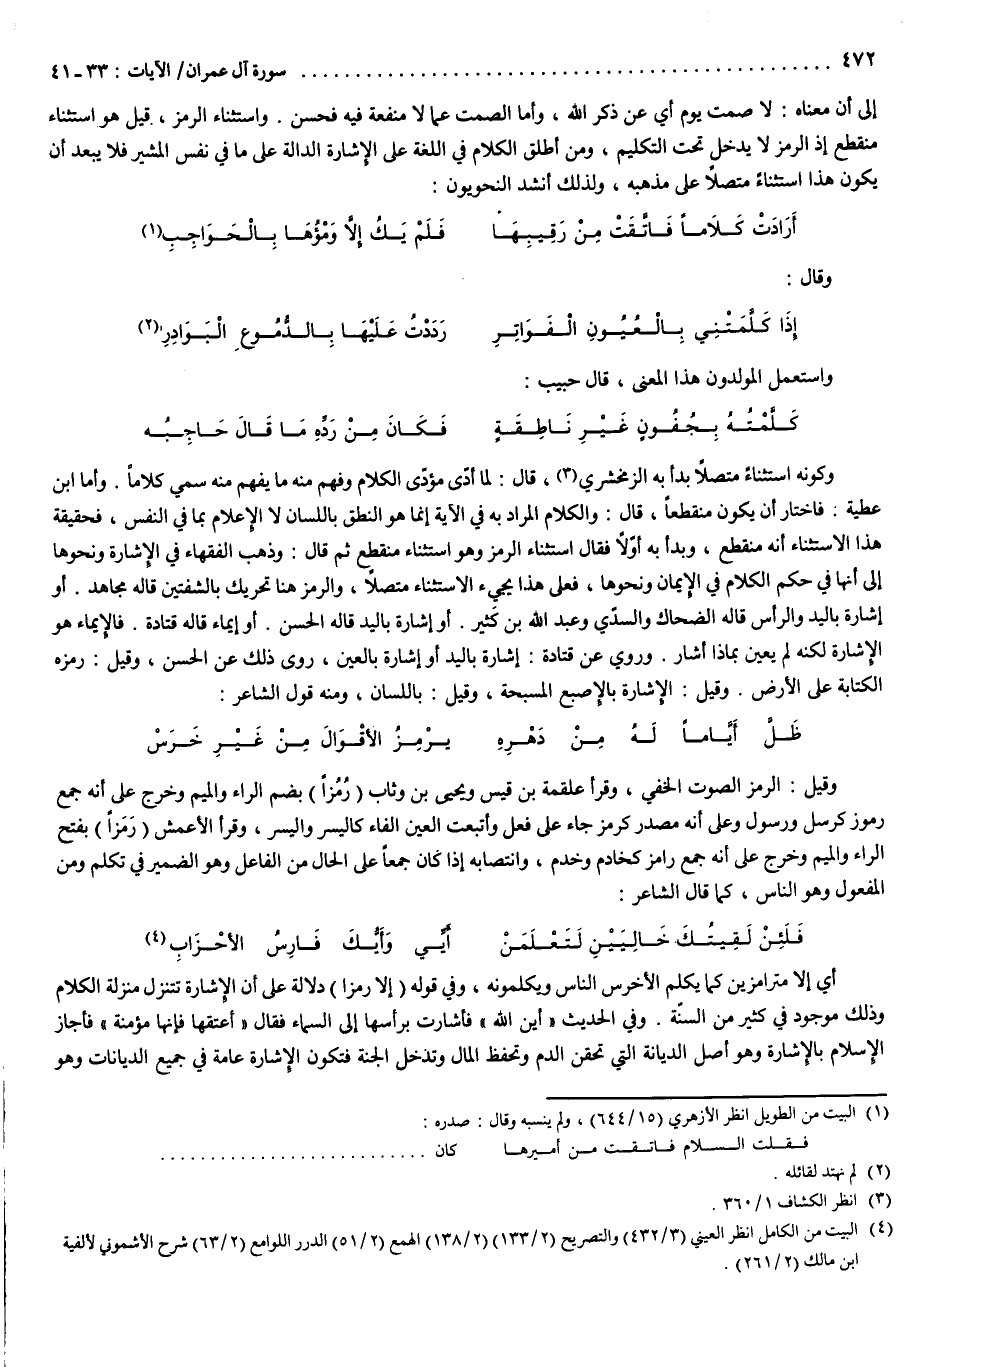 ٤٧٢ ........................................................ سورة آل عمران/ الآيات : ٣٣-٤١
إلى أن معناه : لا صمت يوم أي عن ذكر الله ، وأما الصمت عما لا منفعة فيه فحسن . واستثناء الرمز ، قيل هو استثناء
منقطع إذ الرمز لا يدخل تحت التكليم ، ومن أطلق الكلام في اللغة على الإشارة الدالة على ما في نفس المشير فلا يبعد أن
يكون هذا استثناءً متصلاً على مذهبه ، ولذلك أنشد النحويون :
أَرَادَتْ كَلَاماً فَاتَّقَتْ مِنْ رَقِيبِهَا فَلَمْ يَكُ إِلَّا وَمْؤُهَا بِالْحَوَاجِبِ(١)
وقال :
إِذَا كَلَّمَتْنِي بِالْعُيُونِ الْفَوَاتِرِ رَدَدْتُ عَلَيْهَا بِالدُّمُوعِ الْبَوَادِرِ(٢)
واستعمل المولدون هذا المعنى ، قال حبيب :
كَلَّمْتُهُ بِجُفُونٍ غَيْرِ نَاطِقَةٍ فَكَانَ مِنْ رَدِّهِ مَا قَالَ حَاجِبُه
وكونه استثناءً متصلاً بدأ به الزمخشري(٣) ، قال : لما أدّى مؤدّى الكلام وفهم منه ما يفهم منه سمي كلاماً . وأما ابن
عطية : فاختار أن يكون منقطعاً ، قال : والكلام المراد به في الآية إنما هو النطق باللسان لا الإعلام بما في النفس ، فحقيقة
هذا الاستثناء أنه منقطع ، وبدأ به أوّلاً فقال استثناء الرمز وهو استثناء منقطع ثم قال : وذهب الفقهاء في الإشارة ونحوها
إلى أنها في حكم الكلام في الإيمان ونحوها ، فعلى هذا يجيء الاستثناء متصلاً ، والرمز هنا تحريك بالشفتين قاله مجاهد . أو
إشارة باليد والرأس قاله الضحاك والسدّي وعبد الله بن كَثير . أو إشارة باليد قاله الحسن . أو إيماء قاله قتادة . فالإيماء هو
الإشارة لكنه لم يعين بماذا أشار . وروي عن قتادة : إشارة باليد أو إشارة بالعين ، روى ذلك عن الحسن ، وقيل : رمزه
الكتابة على الأرض . وقيل : الإشارة بالإصبع المسبحة ، وقيل : باللسان ، ومنه قول الشاعر :
ظَلَّ أَيَّاماً لَهُ مِنْ دَهْرِهِ يَرْمِزُ الأَقْوَالَ مِنْ غَيْرِ خَرَسْ
وقيل : الرمز الصوت الخفي ، وقرأ علقمة بن قيس ويحيى بن وثاب ( رُمُزاً ) بضم الراء والميم وخرج على أنه جمع
رموز كرسل ورسول وعلى أنه مصدر كرمز جاء على فعل وأتبعت العين الفاء كاليسر واليسر ، وقرأ الأعمش ( رَمَزاً ) بفتح
الراء والميم وخرج على أنه جمع رامز كخادم وخدم ، وانتصابه إذا كان جمعاً على الحال من الفاعل وهو الضمير في تكلم ومن
المفعول وهو الناس ، كما قال الشاعر :
فَلَئِنْ لَقِيتُكَ خَالِيَيْنِ لَتَعْلَمَنْ أَيِّي وَأَيُّكَ فَارِسُ الأَحْزَابِ(٤)
أي إلا مترامزين كما يكلم الأخرس الناس ويكلمونه ، وفي قوله ( إلا رمزا ) دلالة على أن الإشارة تتنزل منزلة الكلام
وذلك موجود في كثير من السنّة . وفي الحديث « أين الله » فأشارت برأسها إلى السماء فقال « أعتقها فإنها مؤمنة » فأجاز
الإسلام بالإشارة وهو أصل الديانة التي تحقن الدم وتحفظ المال وتدخل الجنة فتكون الإشارة عامة في جميع الديانات وهو
(١) البيت من الطويل انظر الأزهري (٦٤٤/١٥) ، ولم ينسبه وقال : صدره :
فقلت السلام فاتقت من أميرها كان ...........................
(٢) لم نهتد لقائله .
(٣) انظر الكشاف ٣٦٠/١ .
(٤) البيت من الكامل انظر العيني (٤٣٢/٣) والتصريح (١٣٣/٢) (١٣٨/٢) الهمع (٥١/٢) الدرر اللوامع (٦٣/٢) شرح الأشموني لألفية
ابن مالك (٢٦١/٢) .